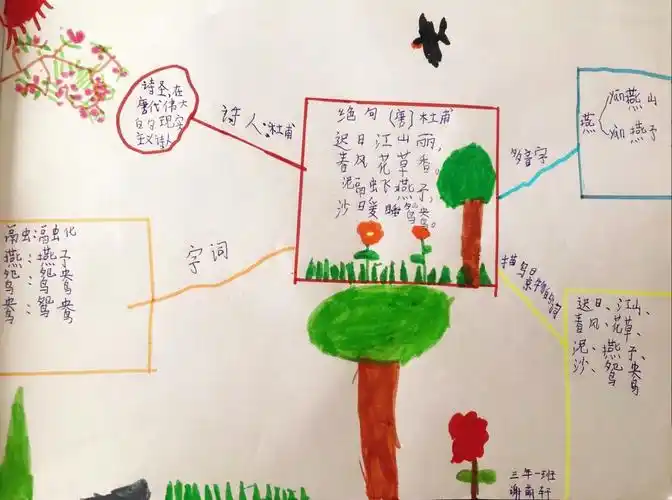 诗圣,在
唐代伟大
白勺现实
主义诗人
诗人:杜甫
绝句 (唐)杜甫
迟日江山丽,
春风花草香。
泥融飞燕子,
沙日暖睡鸳鸯。
多音字
燕
yān燕山
yàn燕子
字词
融:融化
燕:燕子
鸳:鸳鸯
鸯:鸳鸯
描写
景物的词
迟日、江山、
春风、花草、
泥、燕子、
沙、鸳鸯
三年一班